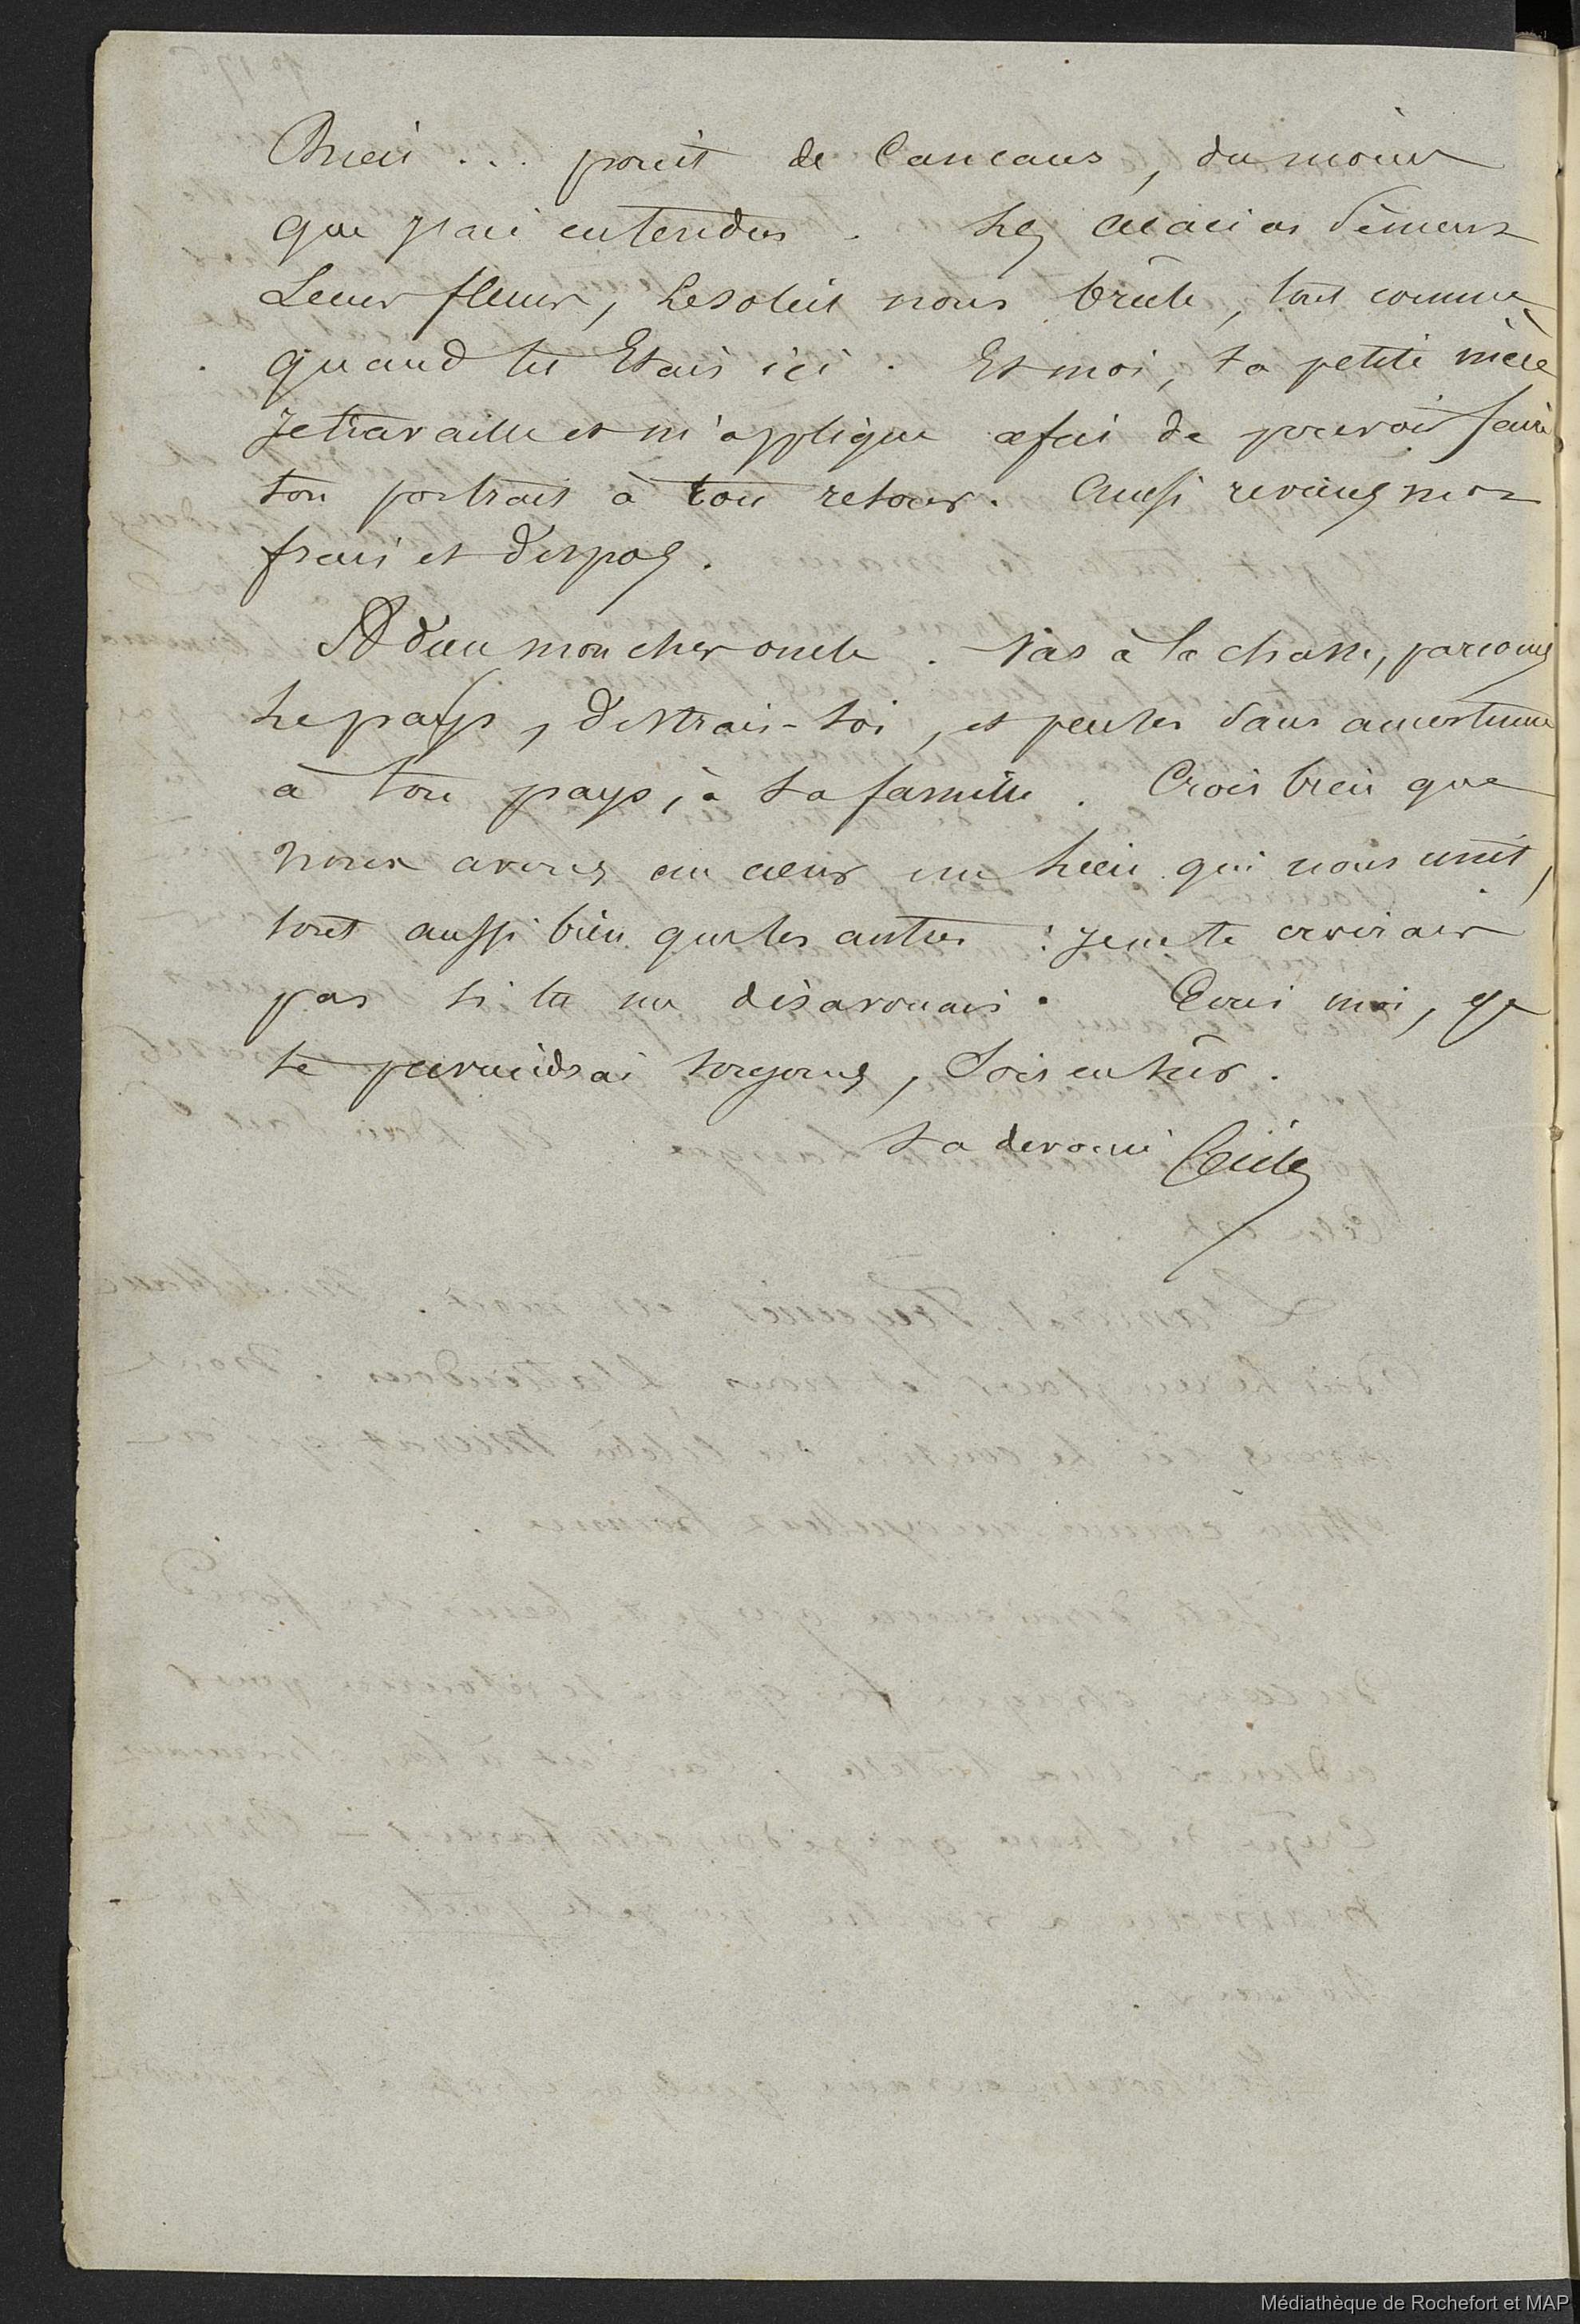 Bruit ... point de Cancans, du moins
que j'aie entendus. Les acacias sèment
Leurs fleurs, Le soleil nous brûle, tout comme
quand tu Etais ici. Et moi, ta petite nièce
Je travaille et m'applique afin de pouvoir faire
ton portrait à ton retour. Aussi reviens nous
frais et dispos.
Adieu mon cher oncle. Vas à la chasse, parcours
Le pays, distrais-toi, et penses sans amertume
à ton pays, à ta famille. Crois bien que
nous avons au cœur un lien qui nous unit,
tout aussi bien que les autres : Je ne te croirais
pas si tu me désavouais. Ecris moi, et je
te préviendrai toujours, Sois en sûr.
ta dévouée
Médiathèque de Rochefort et MAP